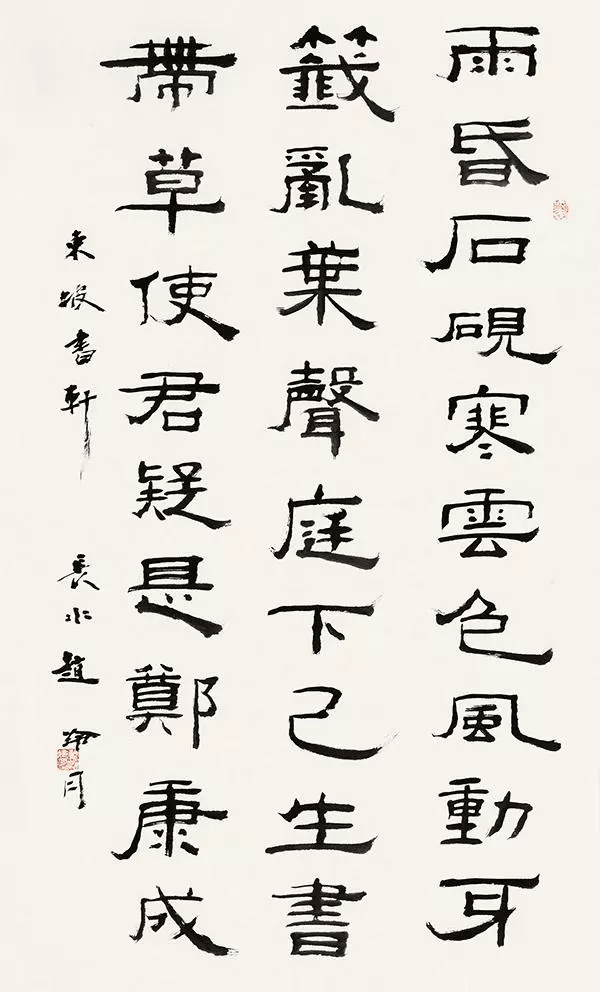 雨昏石硯寒雲色風動牙
籤亂葉聲庭下已生書
帶草使君疑是鄭康成
東坡書軒 水趙 月